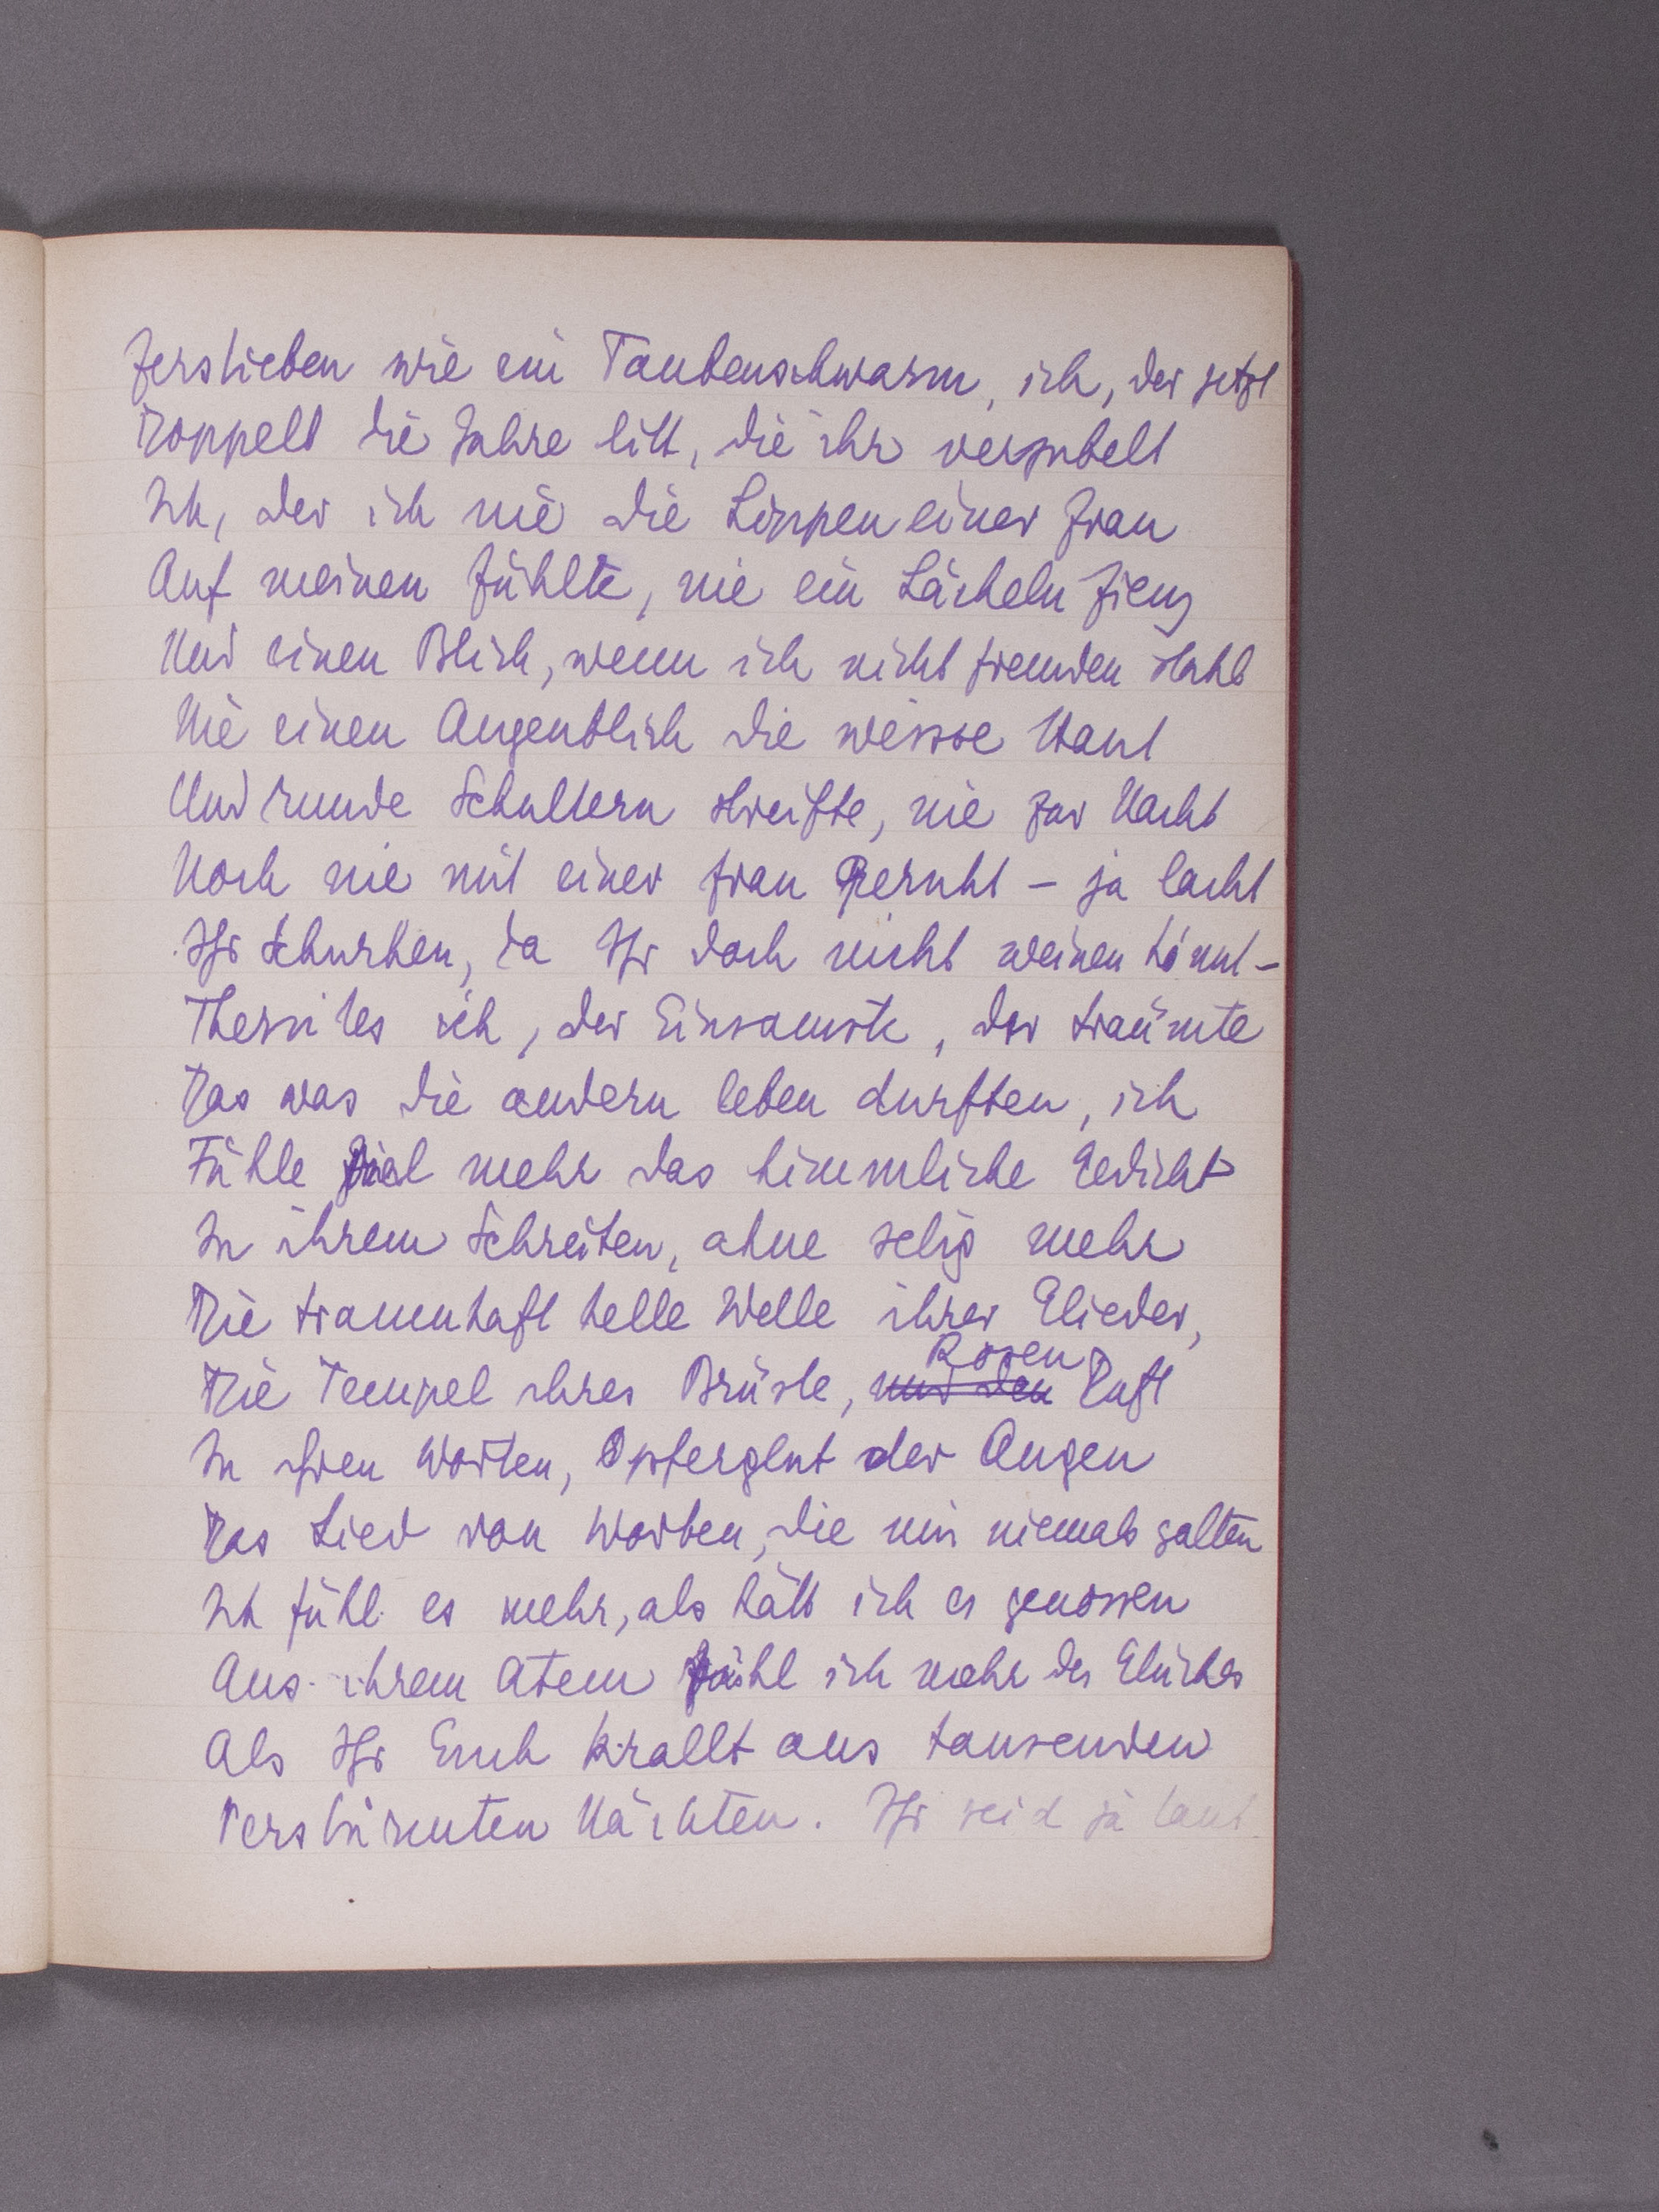 Zerstieben wie ein Taubenschwarm, ich, der jetzt
Doppelt die Jahre litt, die ihr verjubelt
Ich, der ich nie die Lippen einer Frau
Auf meinen fühlte, nie ein Lächeln fieng
Und einen Blick, wenn ich nicht fremden stahl
Nie einen Augenblick die weisse Haut
Und runde Schultern streifte, nie zur Nacht
Noch nie mit einer Frau geruht – ja lacht
Ihr Schurken, da Ihr doch nicht weinen könnt –
Thersites ich, der Einsamste, der träumte
Das was die andern leben durften, ich
Fühle viel mehr das himmlische Gedicht
In ihrem Schreiten, ahne selig mehr
Die traumhaft helle Welle ihrer Glieder,
Rosen
Die Tempel ihrer Brüste, und den Duft
In ihren Worten, Opferglut der Augen
Das Lied von Worten, die mir niemals galten
Ich fühl es mehr, als hätt ich es genossen
Aus ihrem Atem fühl ich mehr des Glückes
Als Ihr Euch krallt aus tausenden
Verstürmten Nächten. Ihr seid ja taub